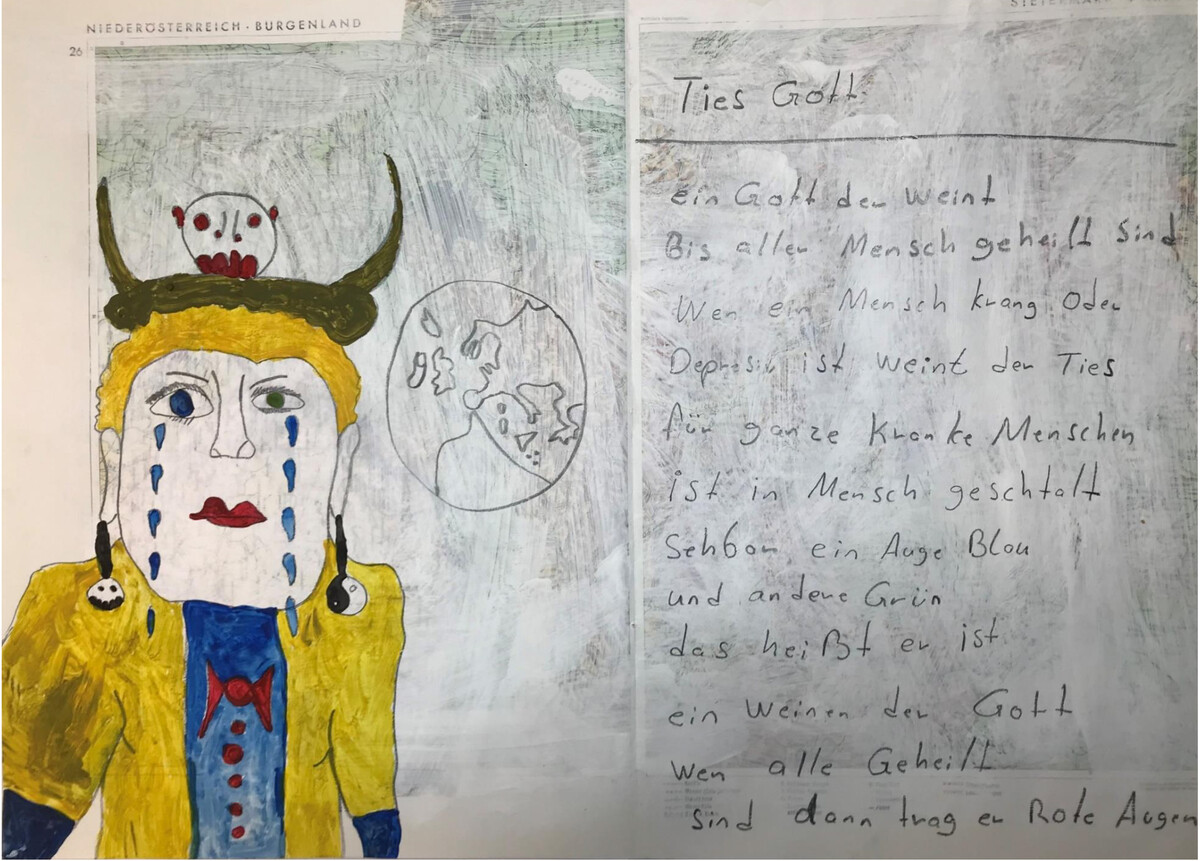 NIEDERÖSTERREICH · BURGENLAND
26
Ties Gott
ein Gott der Weint
Bis aller Mensch geheilt Sind
Wen ein Mensch krang Oder
Depresiv ist weint der Ties
für ganze Kranke Menschen
ist in Mensch geschtalt
Sehbar ein Auge Blau
und andere Grün
das heißt er ist
ein Weinen der Gott
wen alle Geheilt
sind dann trag er Rote Augen